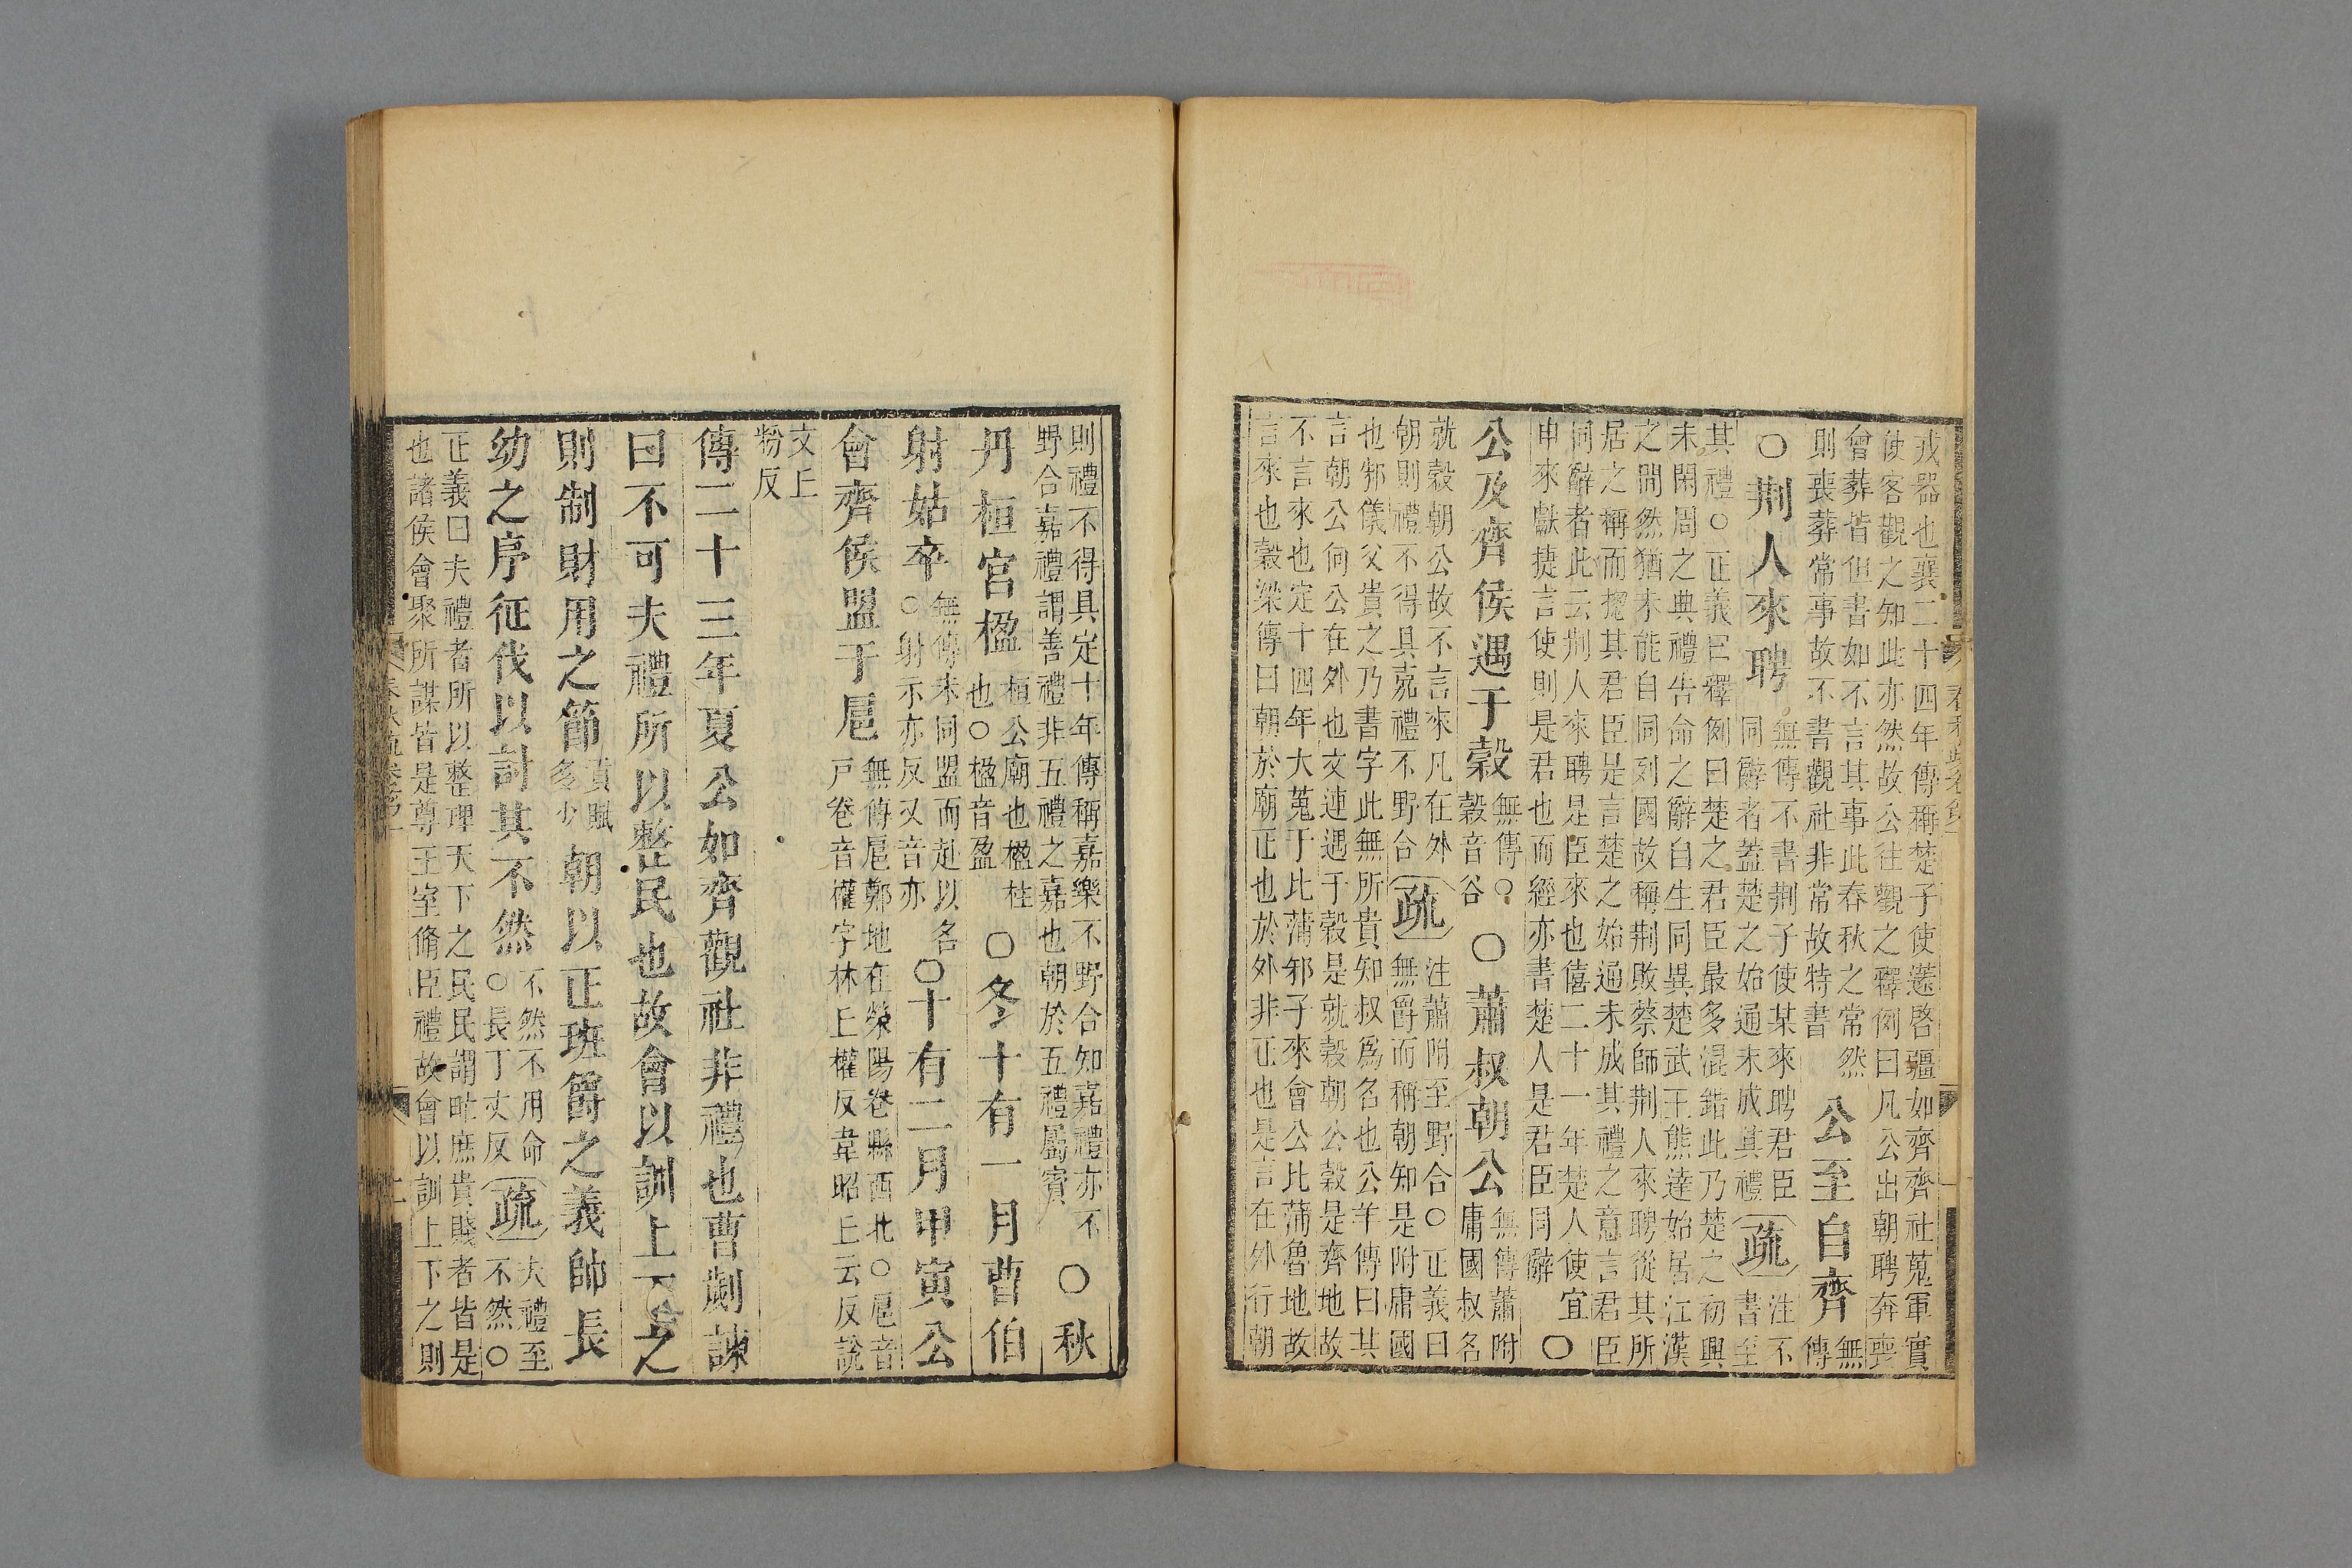 戎器也襄二十四年傳稱楚子使薳啓疆如齊齊社蒐軍實
使客觀之知此亦然故公往觀之釋例曰凡公出朝聘奔喪
會葬皆但書如不言其事此春秋之常然
則喪葬常事故不書觀社非常故特書
公至自齊
無
傳
○荆人來聘
無傳不書荆子使某來聘君臣
同辭者蓋楚之始通未成其禮
疏
注不
書至
其禮○正義曰釋例曰楚之君臣最多混錯此乃楚之初興
未閑周之典禮告命之辭自生同異楚武王熊達始居江漢
之間然猶未能自同列國故稱荆敗蔡師荆人來聘從其所
居之稱而揔其君臣是言楚之始通未成其禮之意言君臣
同辭者此云荆人來聘是臣來也僖二十一年楚人使宜
申來獻捷言使則是君也而經亦書楚人是君臣同辭
○
公及齊侯遇于穀
無傳○
穀音谷
○蕭叔朝公
無傳蕭附
庸國叔名
就穀朝公故不言來凡在外
朝則禮不得具嘉禮不野合
疏
注蕭附至野合○正義曰
無爵而稱朝知是附庸國
也邾儀父貴之乃書字此無所貴知叔爲名也公羊傳曰其
言朝公何公在外也文連遇于穀是就穀朝公穀是齊地故
不言來也定十四年大蒐于比蒲邾子來會公比蒲魯地故
言來也穀梁傳曰朝於廟正也於外非正也是言在外行朝
則禮不得具定十年傳稱嘉樂不野合知嘉禮亦不
野合嘉禮謂善禮非五禮之嘉也朝於五禮屬賓
○秋
丹桓宮楹
桓公廟也楹柱
也○楹音盈
○冬十有一月曹伯
射姑卒
無傳未同盟而赴以名
○射示亦反又音亦
○十有二月甲寅公
會齊侯盟于扈
無傳扈鄭地在滎陽卷縣西北○扈音
戶卷音權字林上權反韋昭上云反說
文上
粉反
傳二十三年夏公如齊觀社非禮也曹劌諫
曰不可夫禮所以整民也故會以訓上下之
則制財用之節
貢賦
多少
朝以正班爵之義帥長
幼之序征伐以討其不然
不然不用命
○長丁丈反
疏
夫禮至
不然○
正義曰夫禮者所以整理天下之民民謂甿庶貴賤者皆是
也諸侯會聚所謀皆是尊王室脩臣禮故會以訓上下之則